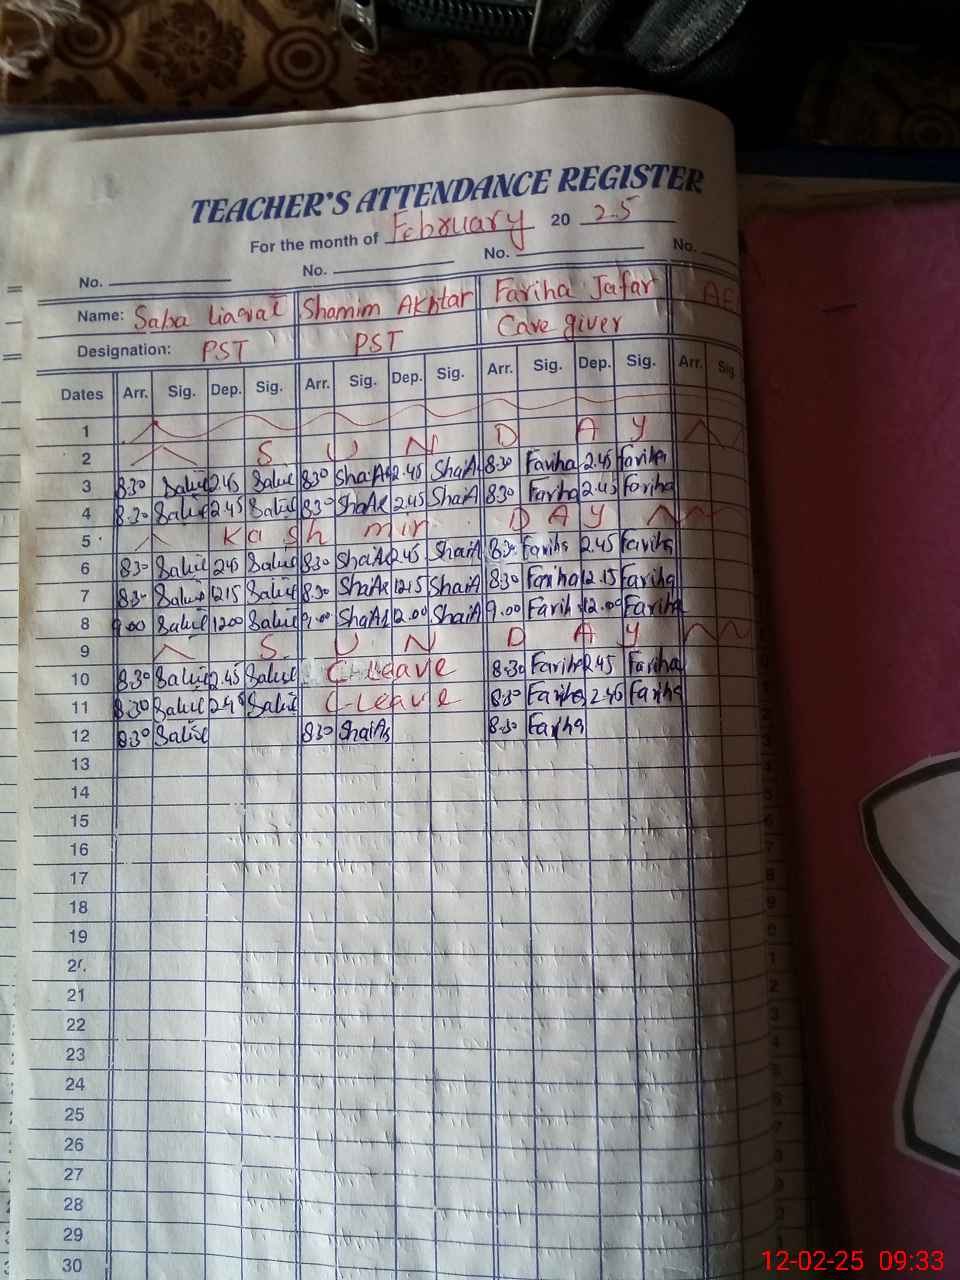 TEACHER'S ATTENDANCE REGISTER
For the month of February 20 25
No. No. No. No.
Name: Saba Liaqat Shamim Akhtar Fariha Jafar
Designation: PST PST Care giver
Dates Arr. Sig. Dep. Sig. Arr. Sig. Dep. Sig. Arr. Sig. Dep. Sig. Arr. Sig.
1
2 S U N D A Y
3 8:30 2.45 8:30 2.45 8:30 Fariha 2.45 Fariha
4 8:30 2.45 8:30 2.45 8:30 Fariha 2.45 Fariha
5 Kashmir DAY
6 8:30 2.45 8:30 2.45 8:30 Fariha 2.45 Fariha
7 8:30 12.15 8:30 12.15 8:30 Fariha 12.15 Fariha
8 9.00 12.00 9.00 12.00 9.00 Fariha 12.00 Fariha
9 S U N D A Y
10 8:30 2.45 C-Leave 8:30 Fariha 2.45 Fariha
11 8:30 2.45 C-Leave 8:30 Fariha 2.45 Fariha
12 8:30 8:30 8:30 Fariha
13
14
15
16
17
18
19
21
22
23
24
25
26
27
28
29
30
12-02-25 09:33